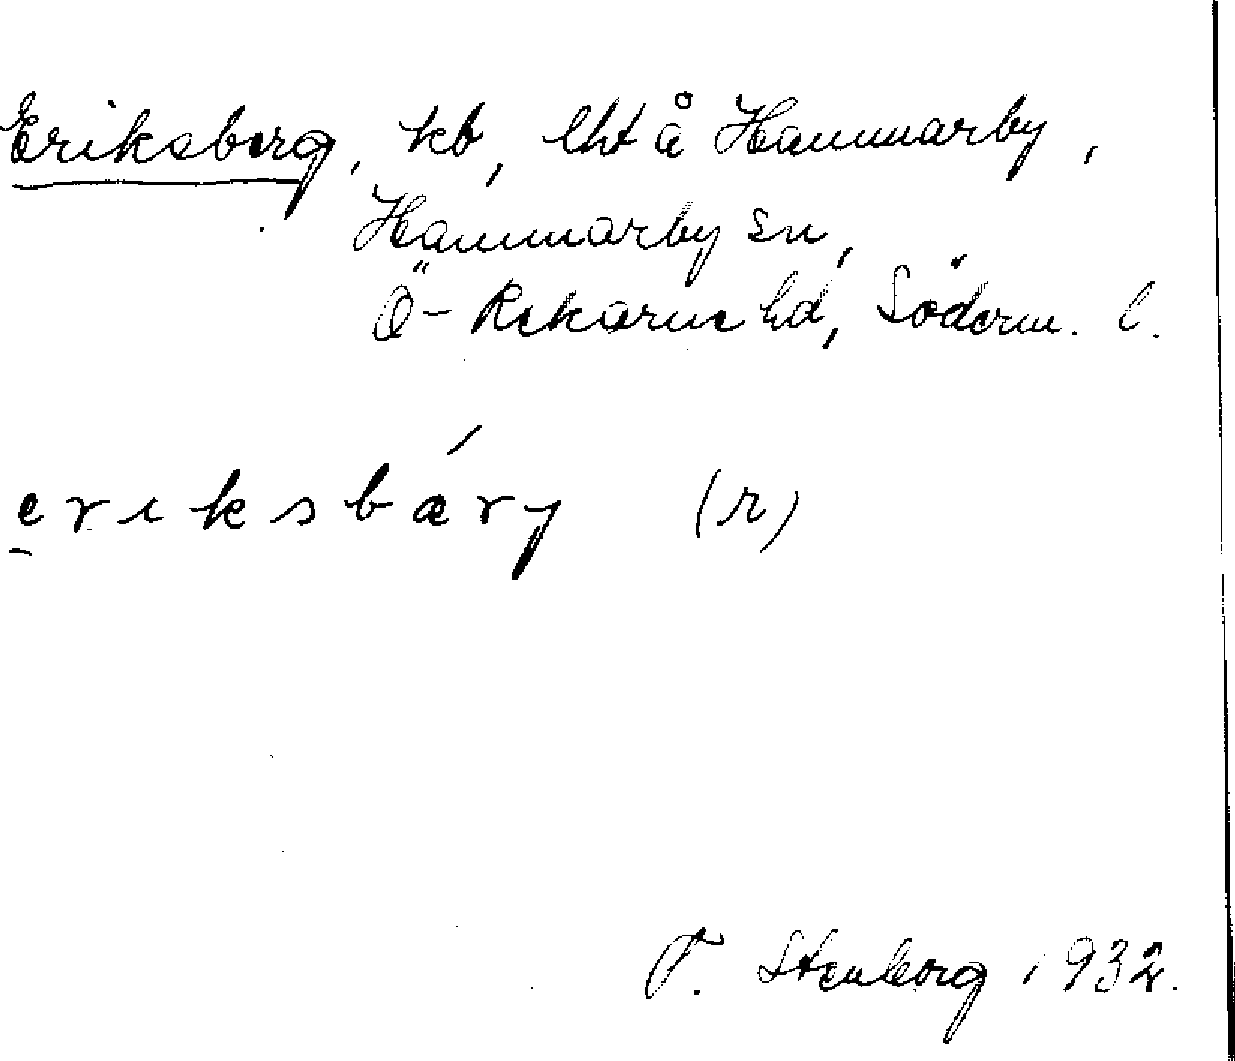 Eriksberg, kb, lht å Hammarby,
Hammarby sn,
Ö-Rekarne hd, Söderm. l.
eriksbǽry (r)
F. Stenberg 1932.